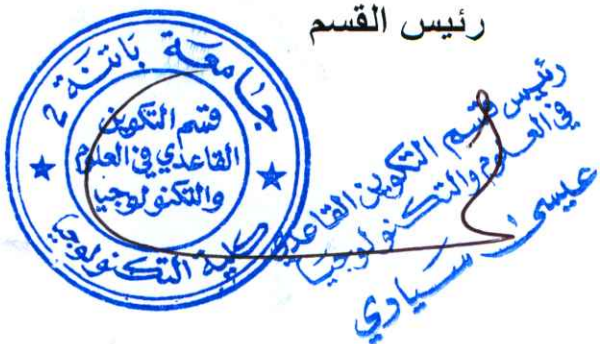 رئيس القسم
جامعة باتنة 2
قسم التكوين
القاعدي في العلوم
والتكنولوجيا
كلية التكنولوجيا
رئيس قسم التكوين القاعدي
في العلوم والتكنولوجيا
عيسى سيادي